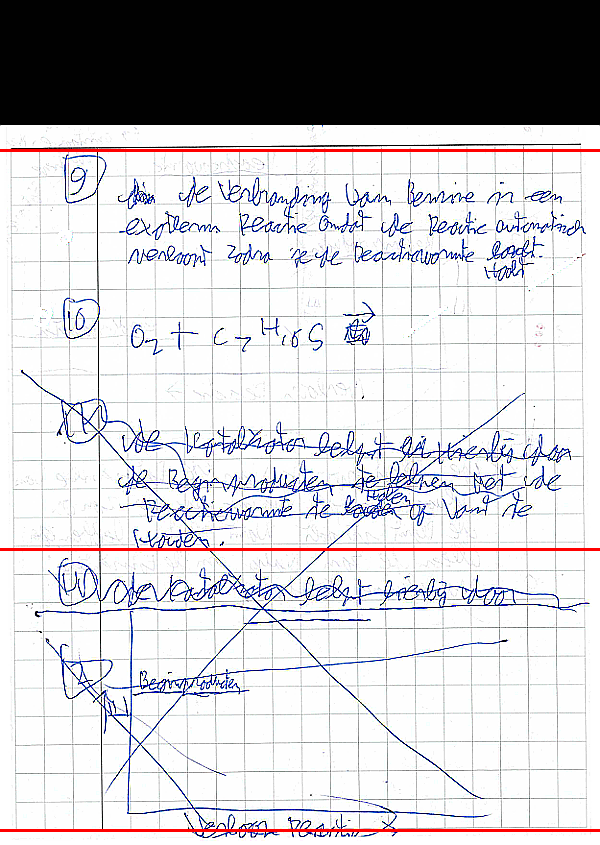 9
de Verbranding Vam Benzine is een
exotherm Reactie omdat de Reactie automatisch
verloopt zodra ze de Reactiewarmte
Hadt
10
O2 + C7 H16 S →
11
de katalysator helpt hierbij door
de Beginprodukten te helpen met de
Reactiewarmte te op Vant te
Houden.
de katalysator helpt hierbij door
Beginprodukten
Verloop Reactie